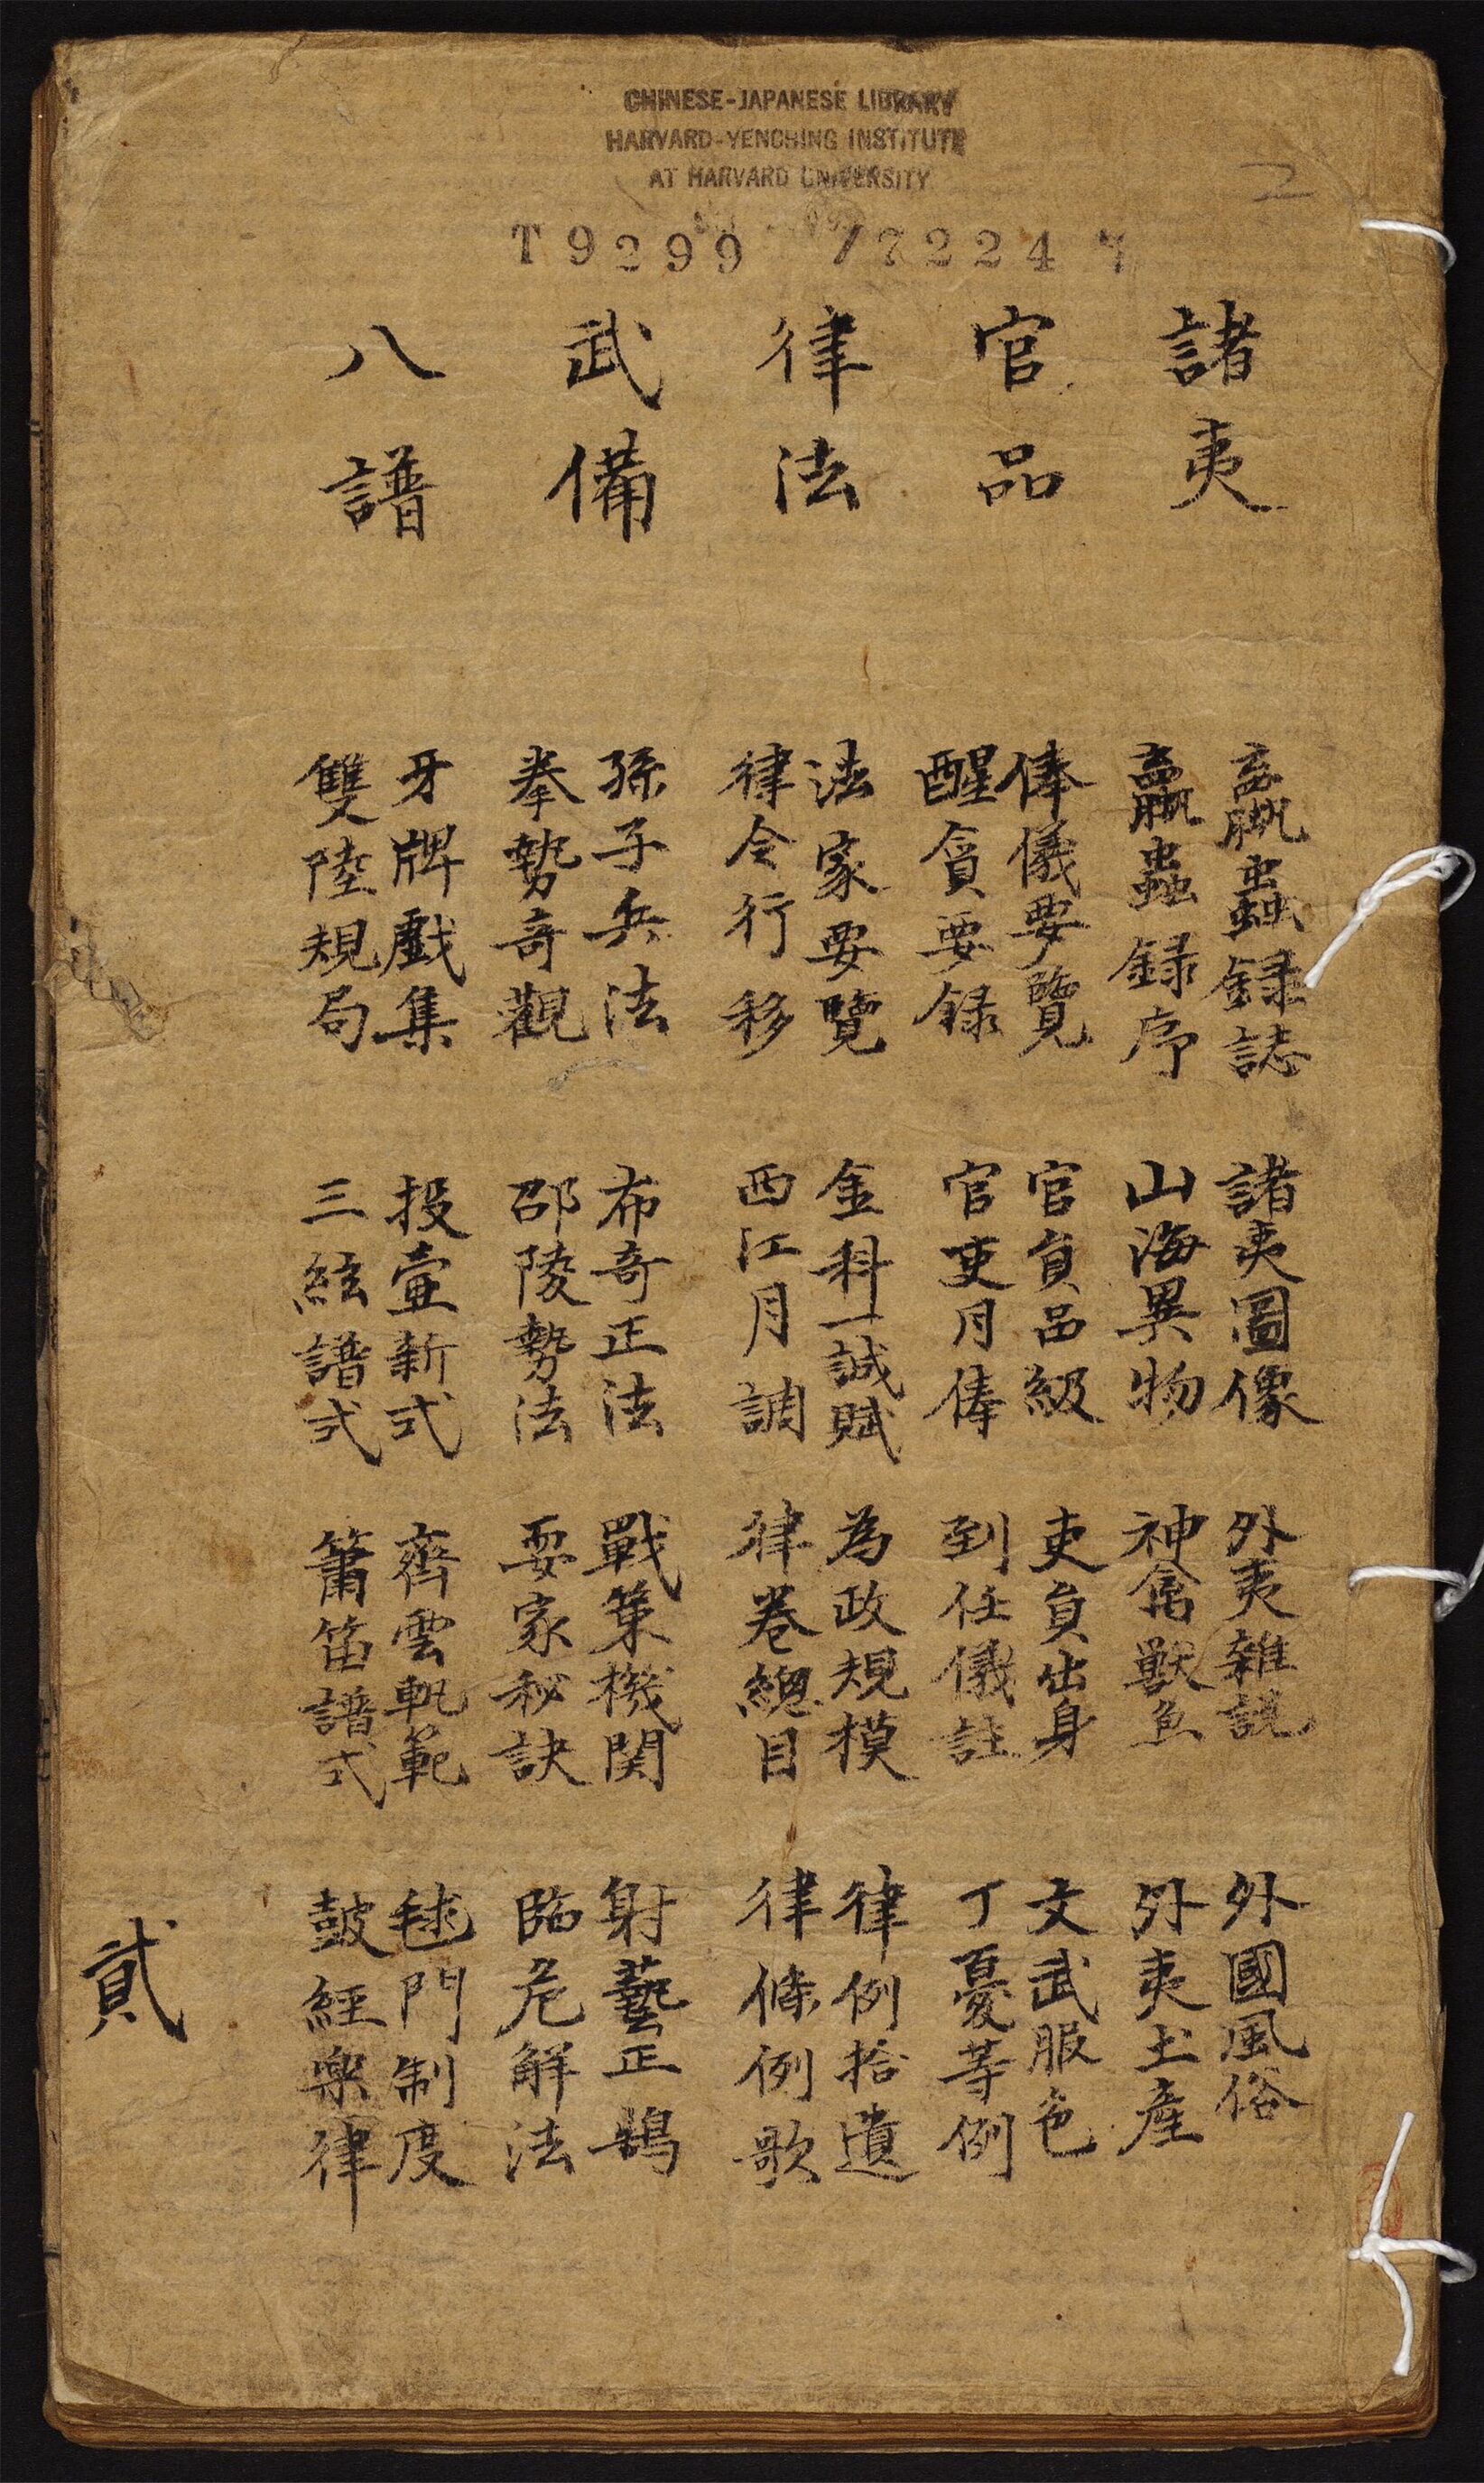 CHINESE-JAPANESE LIBRARY
HARVARD-YENCHING INSTITUTE
AT HARVARD UNIVERSITY
2
T 9299 /7224
諸夷
嬴蟲録誌 諸夷圖像 外夷雜説 外國風俗
嬴蟲録序 山海異物 神禽獸魚 外夷土產
官品
俸儀要覽 官員品級 吏員出身 文武服色
醒貪要録 官吏月俸 到任儀註 丁憂等例
律法
法家要覽 金科一誠賦 為政規模 律例拾遺
律令行移 西江月調 律卷總目 律條例歌
武備
孫子兵法 布奇正法 戰策機関 射藝正鵠
拳勢奇觀 邵陵勢法 耍家秘訣 臨危解法
八譜
牙牌戲集 投壷新式 齊雲軌範 毬門制度
雙陸規局 三絃譜式 簫笛譜式 皷經樂律
貳